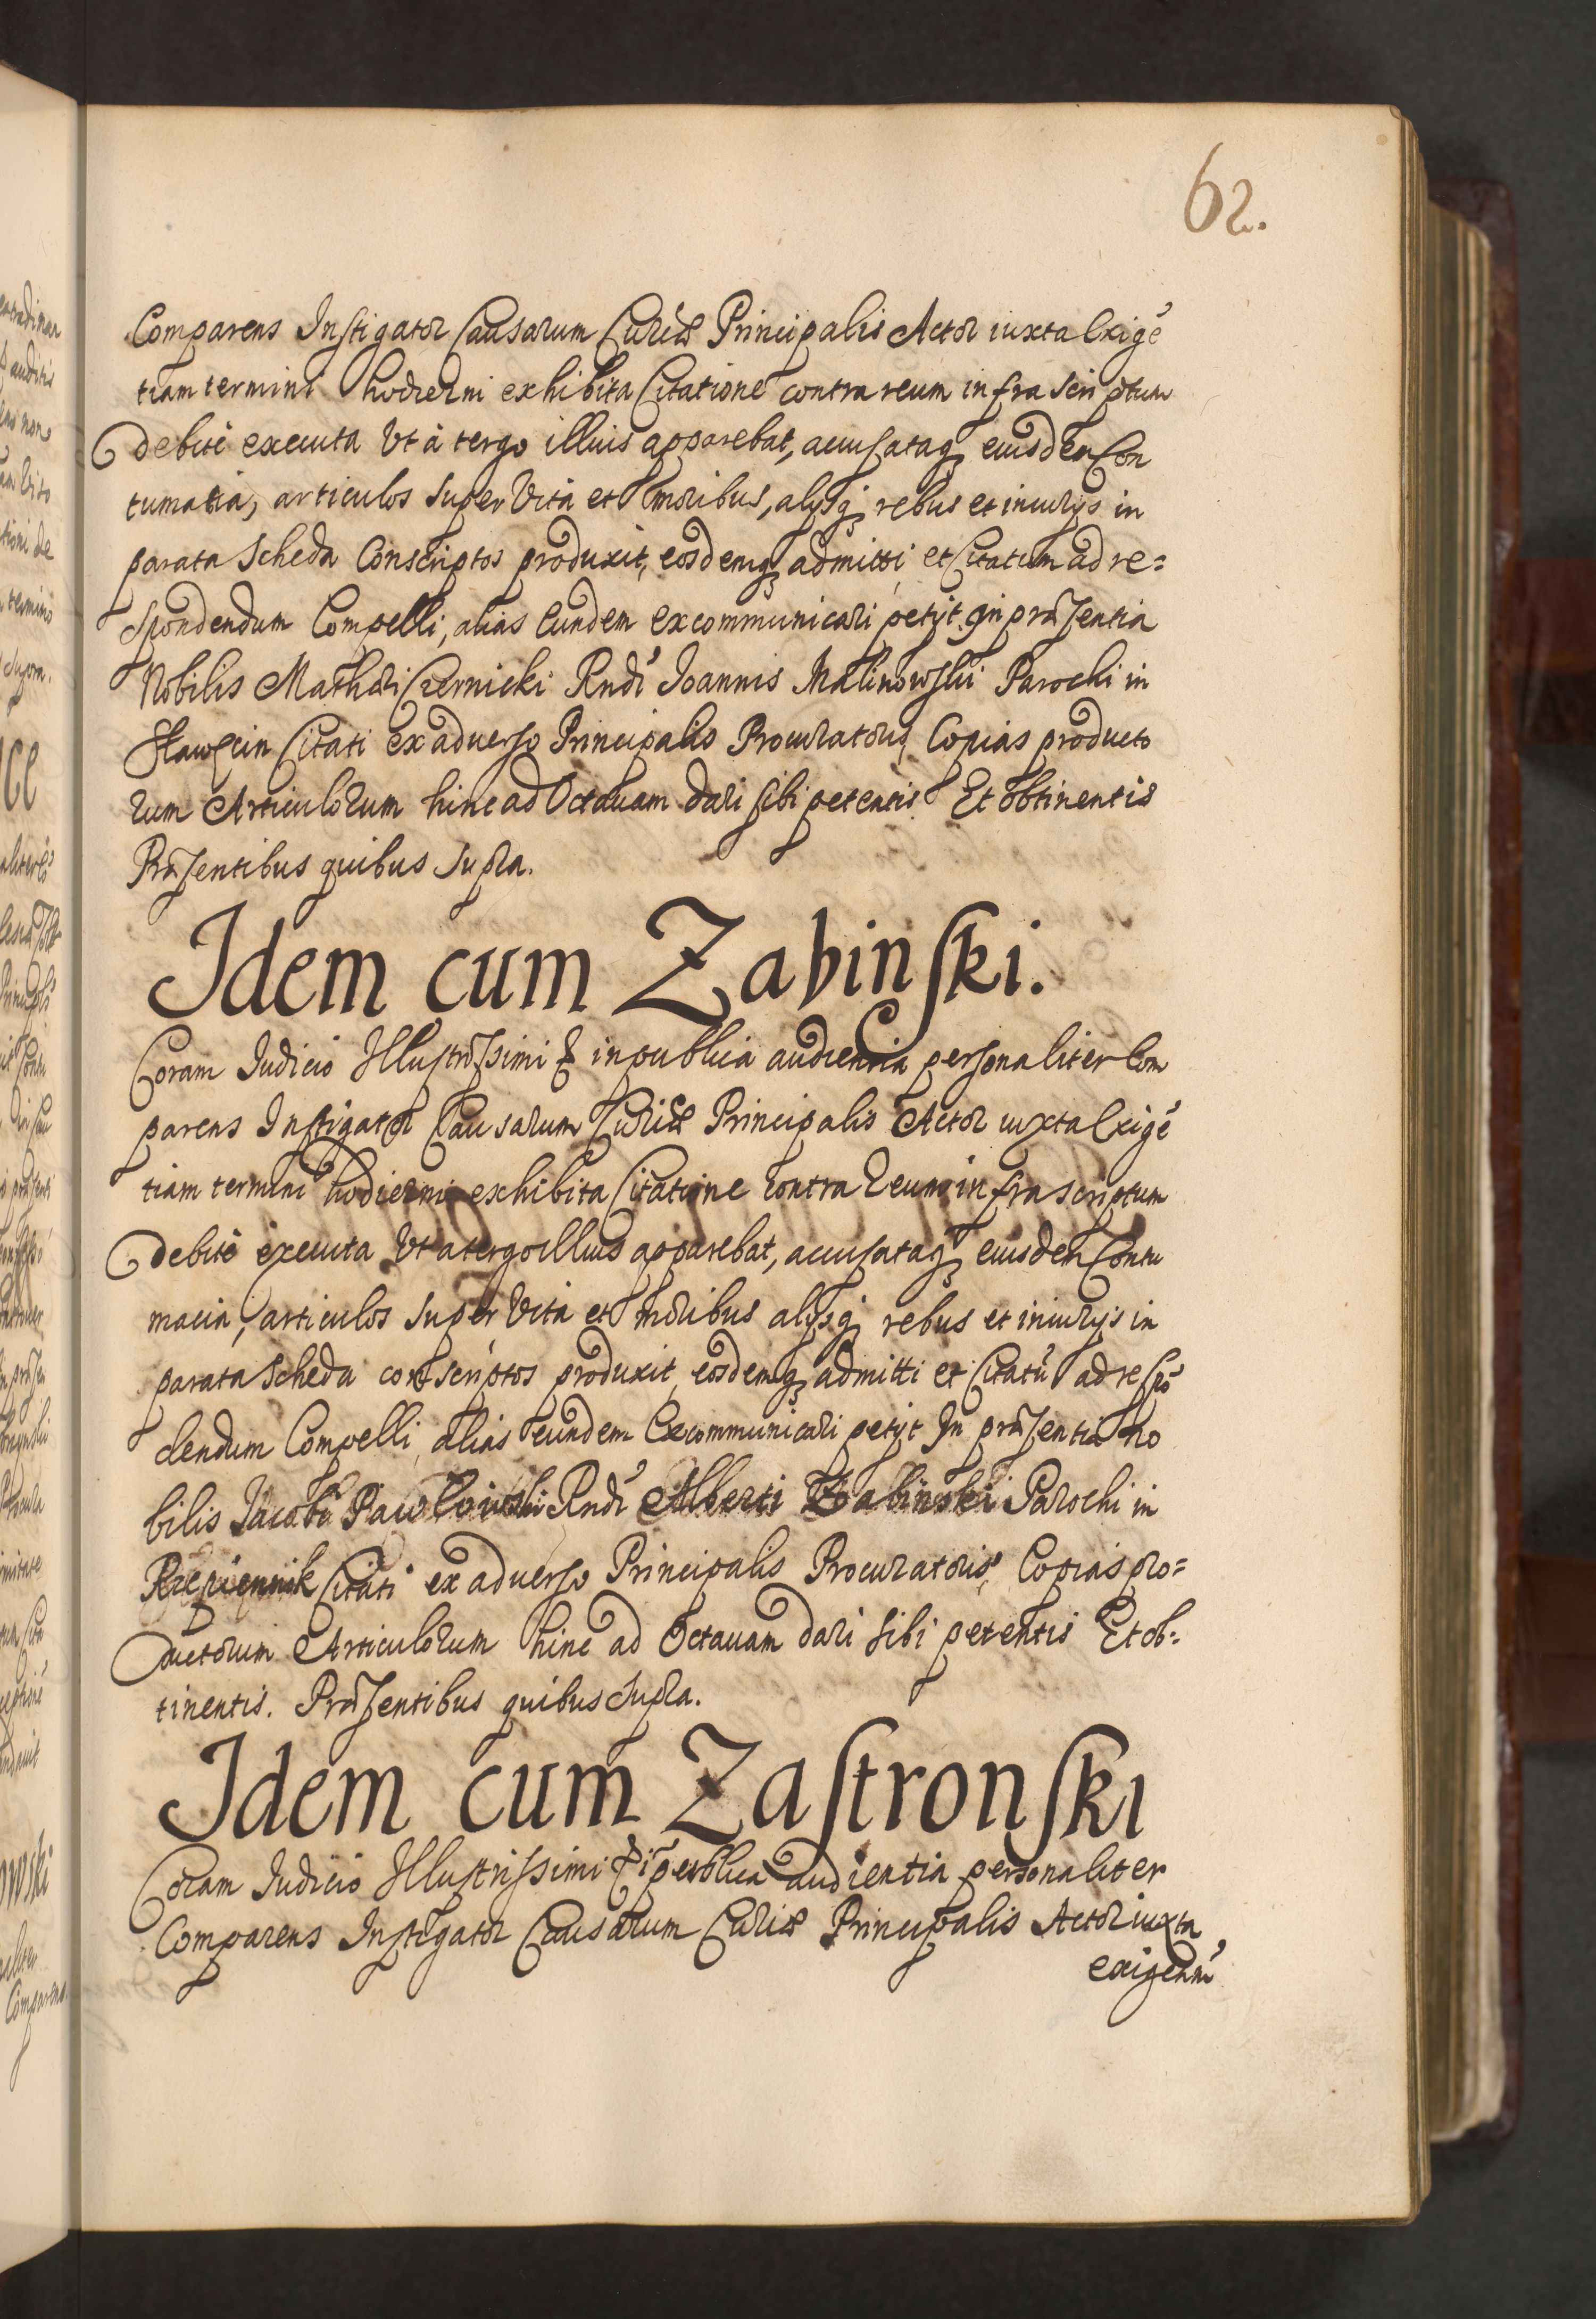 62.
Comparens Instigator Causarum Curiæ Principalis Actor iuxta Exigē
tiam termini hodierni exhibita Citatione contra reum infra scriptum
debitè executa Ut à tergo illius apparebat, accusataq; eiusdem Con
tumatia, articulos super Vita et moribus, alijsq; rebus et iniurijs in
parata Scheda Conscriptos produxit, eosdemq; admitti et Citatum ad re=
spondendum Compelli, alias Eundem excommunicari petijt. In præsentia
Nobilis Mathæi Czernicki Rndi Joannis Malinowski Parochi in
Citati ex aduerso Principalis Procuratoris, Copias producto
rum Articulorum hinc ad Octauam dari sibi petentis Et obtinentis
Præsentibus quibus supra.
Idem cum Zabinski.
Coram Judicio Illustrissimi & in publica audientia personaliter Com
parens Instigator Causarum Curiæ Principalis Actor iuxta Exigē
tiam termini hodierni exhibita Citatione contra Reum infra scriptum
debitè executa Ut a tergo illius apparebat, accusataq; eiusdem Contu
macia, articulos super Vita et moribus alijsq; rebus et iniurijs in
parata Scheda conscriptos produxit, eosdemq; admitti et Citatū ad respō
dendum Compelli, alias eundem Excommunicari petijt In præsentia No
bilis Jacobi Pawłowski Rndi Alberti Zabinski Parochi in
Rzepiennik Citati ex aduerso Principalis Procuratoris, Copias pro=
ductorum Articulorum hinc ad Octauam dari sibi petentis Et ob=
tinentis. Præsentibus quibus supra.
Idem cum Zastronski
Coram Judicio Illustrissimi & ī publica audientia personaliter
Comparens Instigator Causarum Curiæ Principalis Actor iuxta